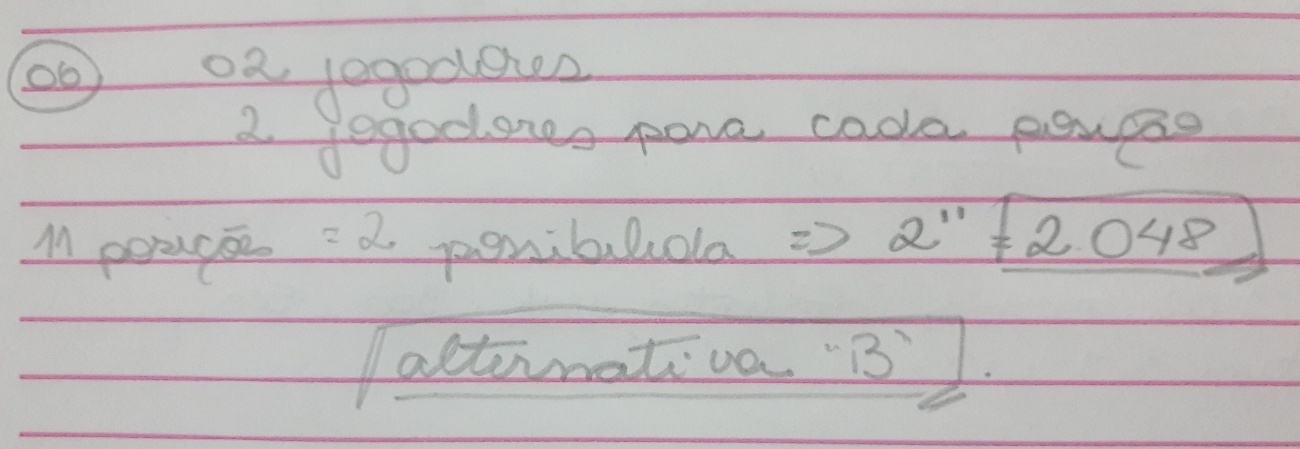 06 02 jogadores
2 jogadores para cada posição
11 posição = 2 possibilida => 2¹¹ = 2.048
alternativa "B".